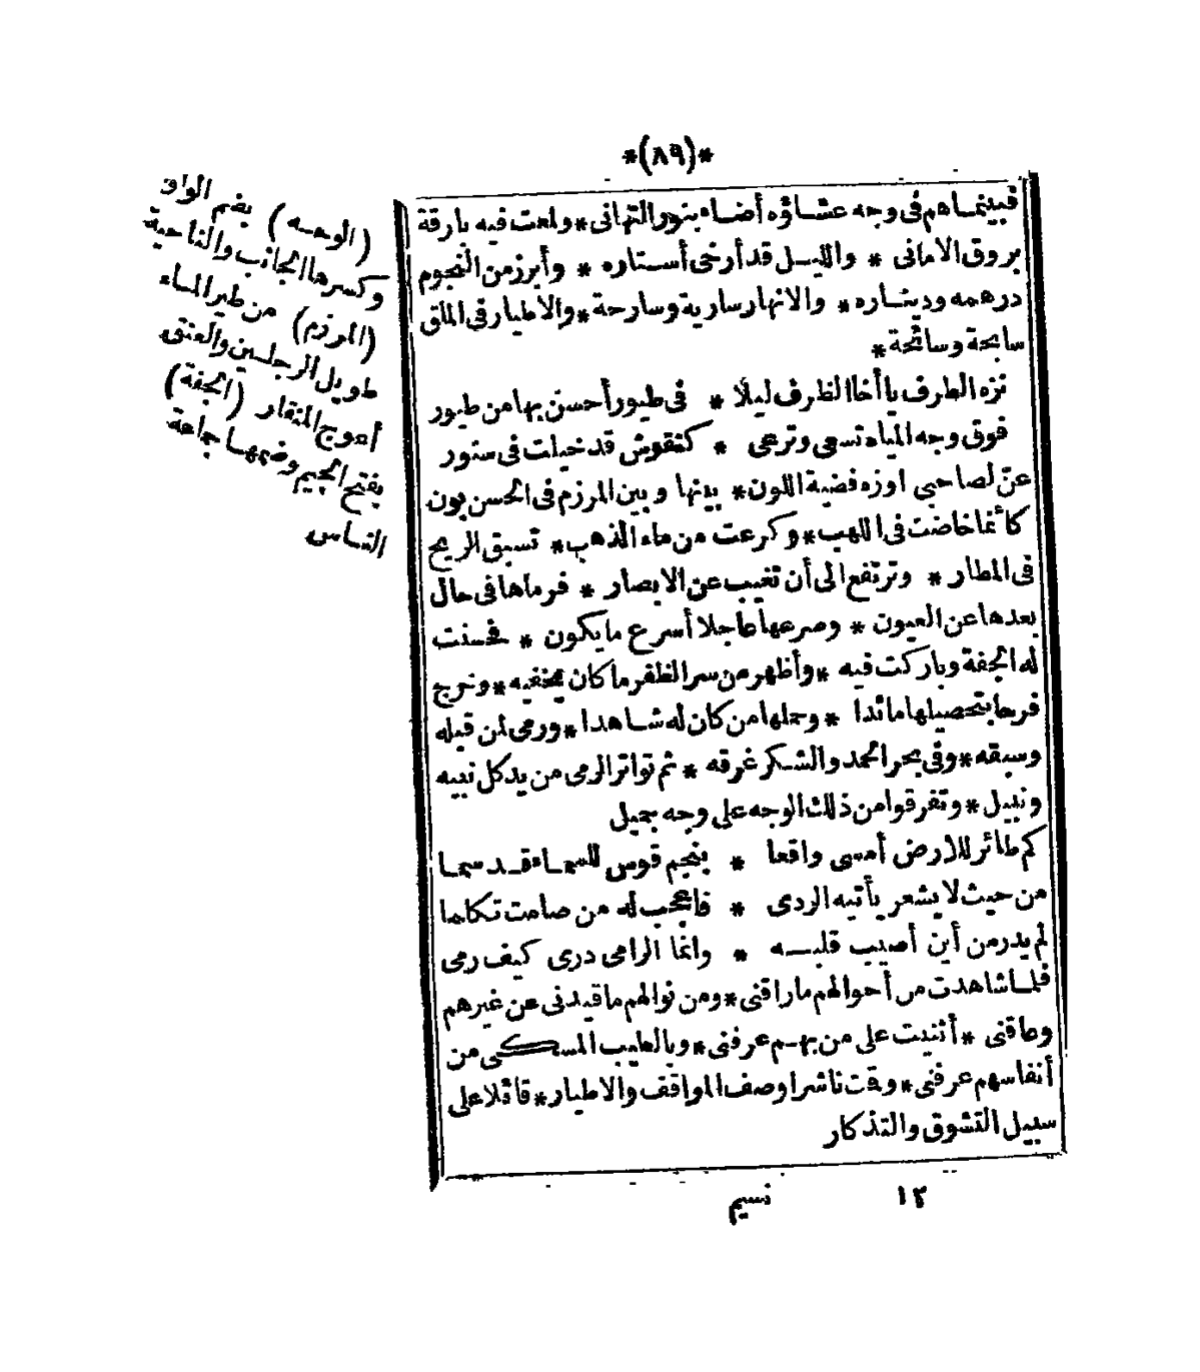 *(٨٩)*
فبينماهم فى وجه عشاؤه أضاء بنور التهانى * ولمعت فيه بارقة
بروق الامانى * والليل قد أرخى أستاره * وأبرز من النجوم
درهمه وديناره * والانهار سارية وسارحة * والاطيار فى الملق
سابحة وسائحة *
نزه الطرف يا أخا الظرف ليلا * فى طيور أحسن بها من طيور
فوق وجه المياه تسعى وترعى * كنقوش قد خيلت فى ستور
عنّ لصاحبى اوزه فضية اللون * بينها وبين المرزم فى الحسن بون
كأنما خاضت فى اللهب * وكرعت من ماء الذهب * تسبق الريح
فى المطار * وترتفع الى أن تغيب عن الابصار * فرماها فى حال
بعدها عن العيون * وصرعها عاجلا أسرع ما يكون * فحسنت
له الجفة وباركت فيه * وأظهر من سر الظفر ما كان يخفيه * وخرج
فرحا بتحصيلها مائدا * وحملها من كان له شاهدا * ورمى لمن قبله
وسبقه * وفى بحر الحمد والشكر غرقه * ثم تواتر الرمى من يد كل نبيه
ونبيل * وتفرقوا من ذلك الوجه على وجه جميل
كم طائر للارض أمسى واقعا * بنجم قوس للسماء قد سما
من حيث لا يشعر يأتيه الردى * فاعجب له من صامت تكلما
لم يدر من أين أصيب قلبه * وانما الرامى درى كيف رمى
فلما شاهدت من أحوالهم ما راقنى * ومن نوالهم ما قيدنى عن غيرهم
وعاقنى * أثنيت على من بهم عرفنى * وبالطيب المسكى من
أنفاسهم عرفنى * وقمت ناشرا وصف المواقف والاطيار * قائلا على
سبيل التشوق والتذكار
١٢ نسيم
(الوجه) بضم الواو
وكسرها الجانب والناحية
(المرزم) من طير الماء
طويل الرجلين والعنق
أعوج المنقار (الجفة)
بفتح الجيم وضمها جماعة
الناس